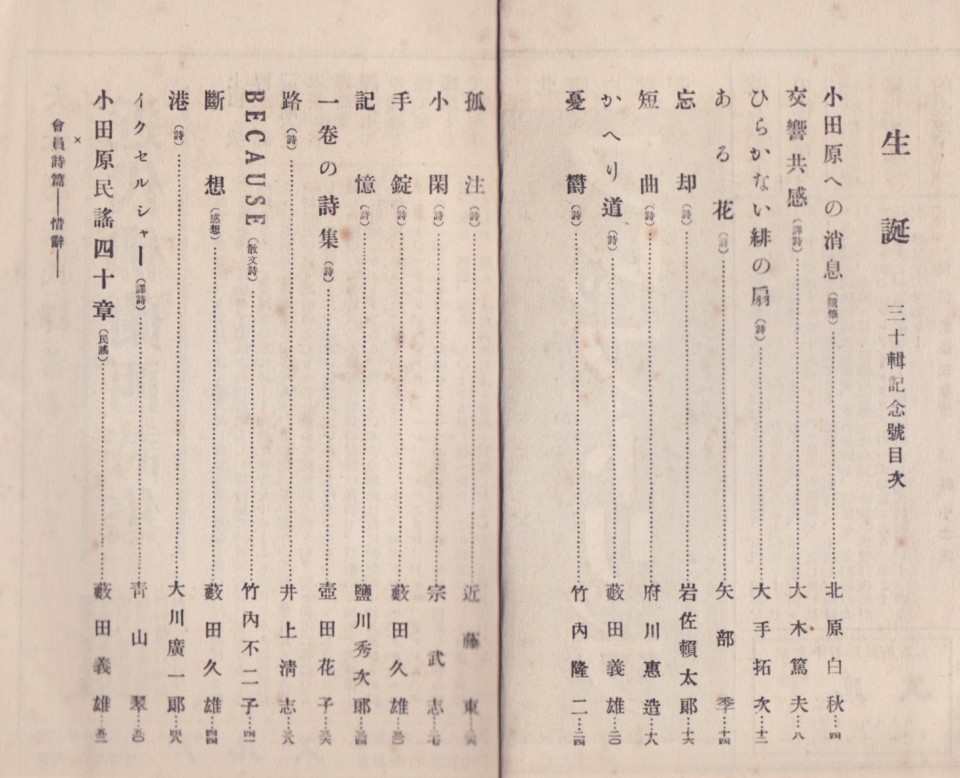 生誕 三十輯記念號目次
小田原への消息………北原白秋…四
交響共感(譯詩)………大木篤夫…八
ひらかない緋の扇(詩)………大手拓次…十二
ある花(詩)………矢部季…十四
忘却(詩)………岩佐賴太郎…十六
短曲(詩)………府川惠造…十八
かへり道(詩)………藪田義雄…二〇
憂欝(詩)………竹內隆二…二四
孤注(詩)………近藤東
小閑(詩)………宗武志
手錠(詩)………藪田久雄
記憶(詩)………鹽川秀次郞
一卷の詩集(詩)………壺田花子
路(詩)………井上淸志
BECAUSE(散文詩)………竹內不二子
斷想(感想)………藪田久雄
港(詩)………大川廣一郞
イクセルシャー(譯詩)………靑山
小田原民謠四十章(民謠)………藪田義雄
×
會員詩篇——惜辭——